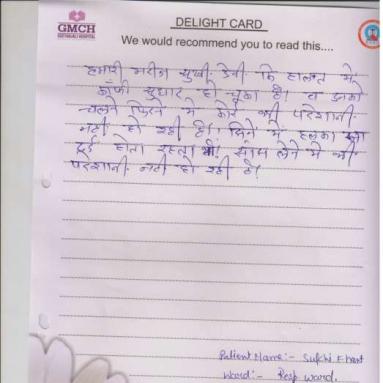 GMCH
GEETANJALI HOSPITAL
DELIGHT CARD
We would recommend you to read this....
हमारी मरीज सुखी देवी कि हालत मे
काफी सुधार हो चूका है। व उनको
चलने फिरने मे कोई भी परेशानी
नही हो रही है। सिने में हलका सा
दर्द होता रहता था। सांस लेने मे भी
परेशानी नही हो रही है।
Patient Name:- Sukhi
Ward:- Resp ward.